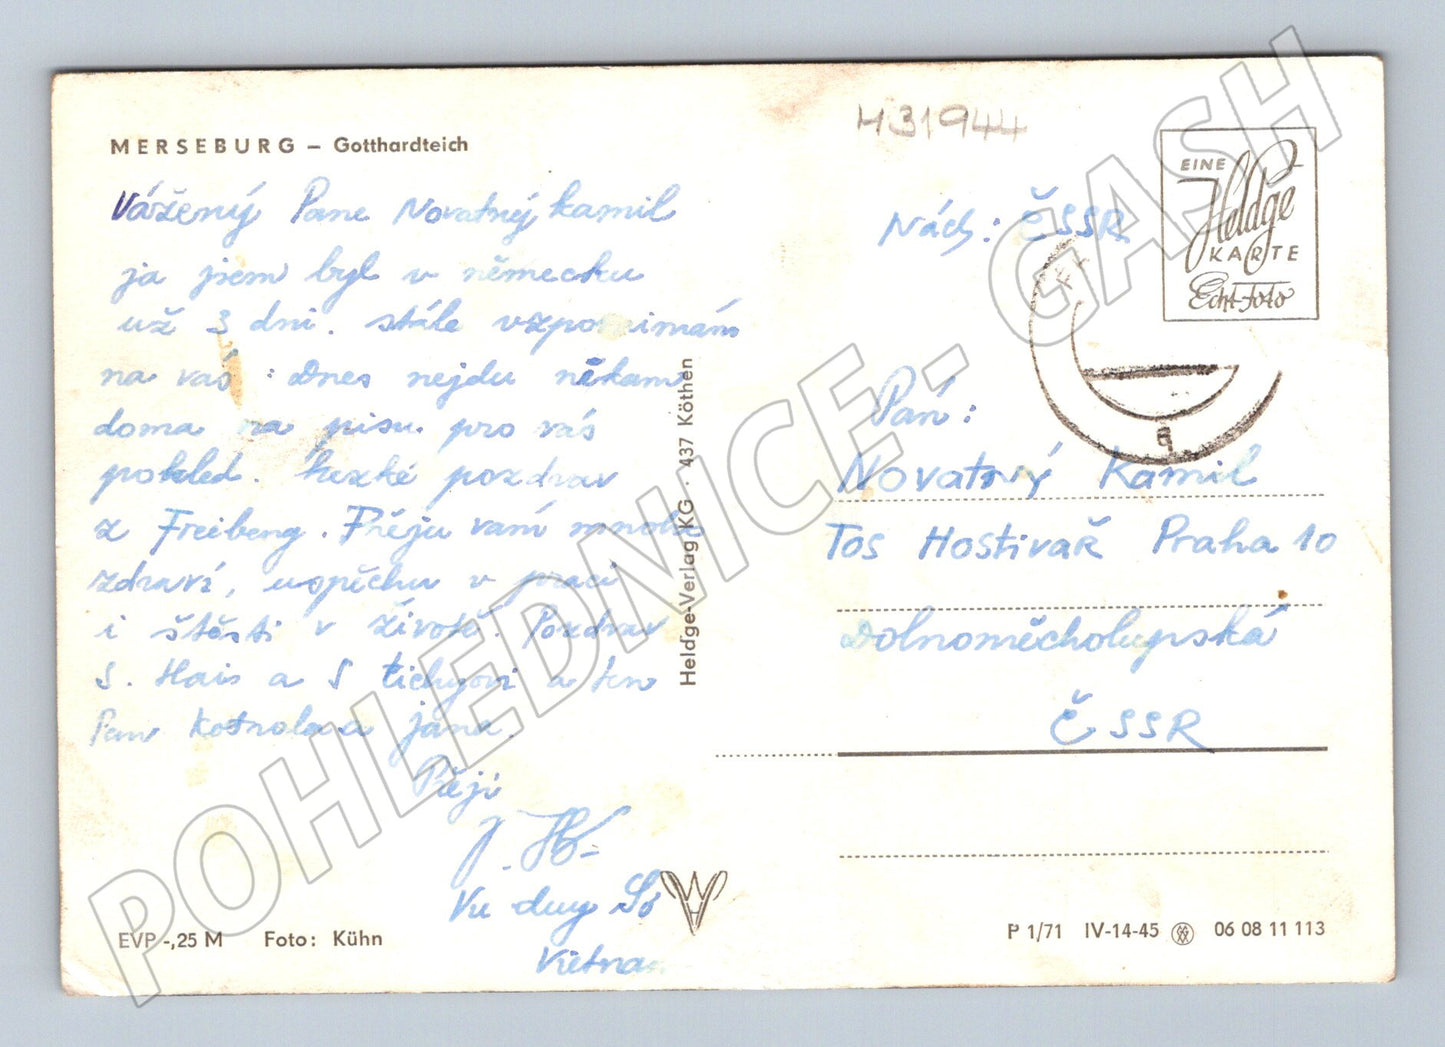 MERSEBURG – Gotthardteich
431944
Vážený Pane Novatnej kamil
ja jsem byl v německu
už 3 dni. stále vzpomimám
na vás: Dnes nejdu někam
doma na pisu pro vás
pohled. hezké pozdrav
z Freibeng. Přěju vam mnoho
zdraví, uspěchu v praci
i štěsti v životě. Pozdrav
S. Hais a S tichyovi a ten
Pan Kotnolova jana.
Přeji
Vu duy Số
Vietnam
EVP -,25 M Foto: Kühn
Heldge-Verlag KG · 437 Köthen
EINE
Heldge
KARTE
Echt-Foto
Nách: ČSSR
Pań:
Novatný Kamil
Tos Hostivař Praha 10
Dolnoměcholupská
ČSSR
P 1/71 IV-14-45 06 08 11 113
POHLEDNICE - GASH